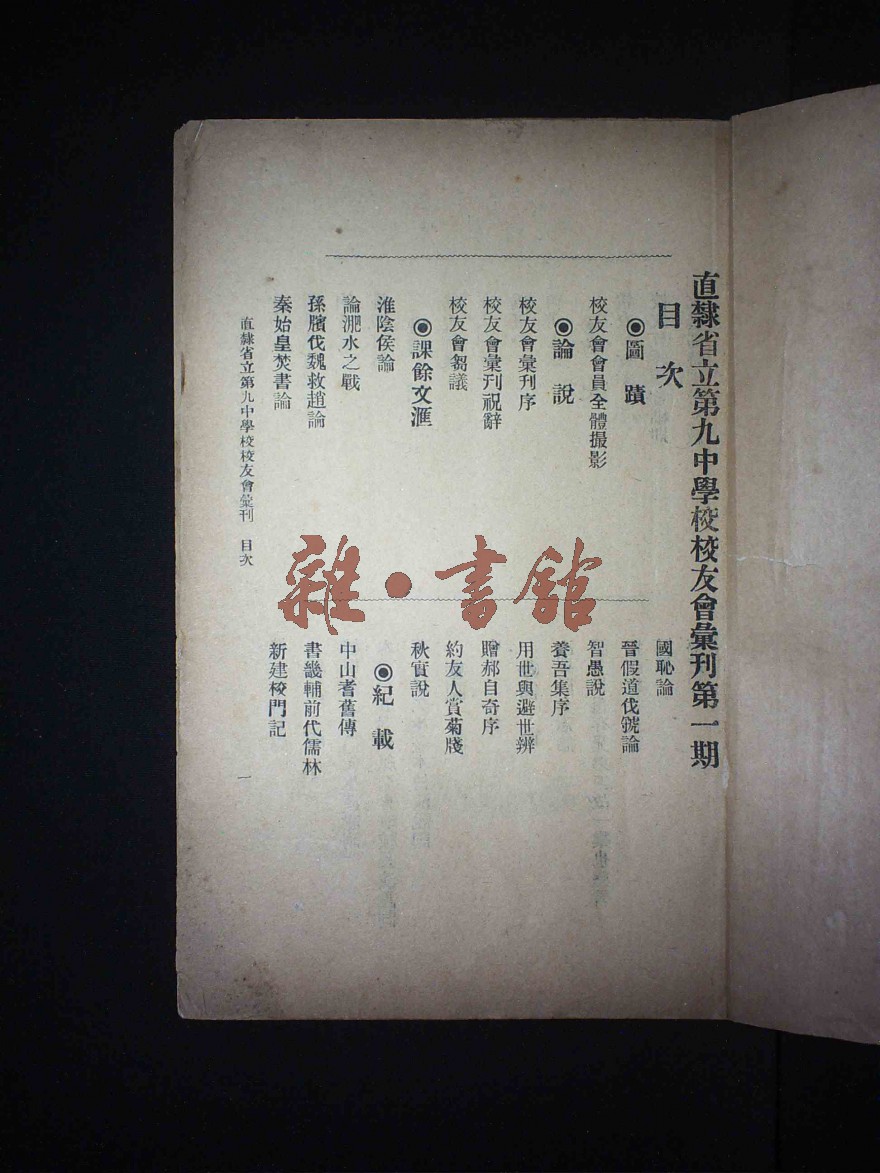 直隸省立第九中學校校友會彙刊第一期
目次
◉圖蹟
校友會會員全體撮影
◉論說
校友會彙刊序
校友會彙刊祝辭
校友會芻議
◉課餘文滙
淮陰侯論
論淝水之戰
孫臏伐魏救趙論
秦始皇焚書論
國恥論
晉假道伐虢論
智愚說
養吾集序
用世與避世辨
贈郝自奇序
約友人賞菊牋
秋實說
◉紀載
中山耆舊傳
書畿輔前代儒林
新建校門記
直隸省立第九中學校校友會彙刊 目次
一
雜·書館